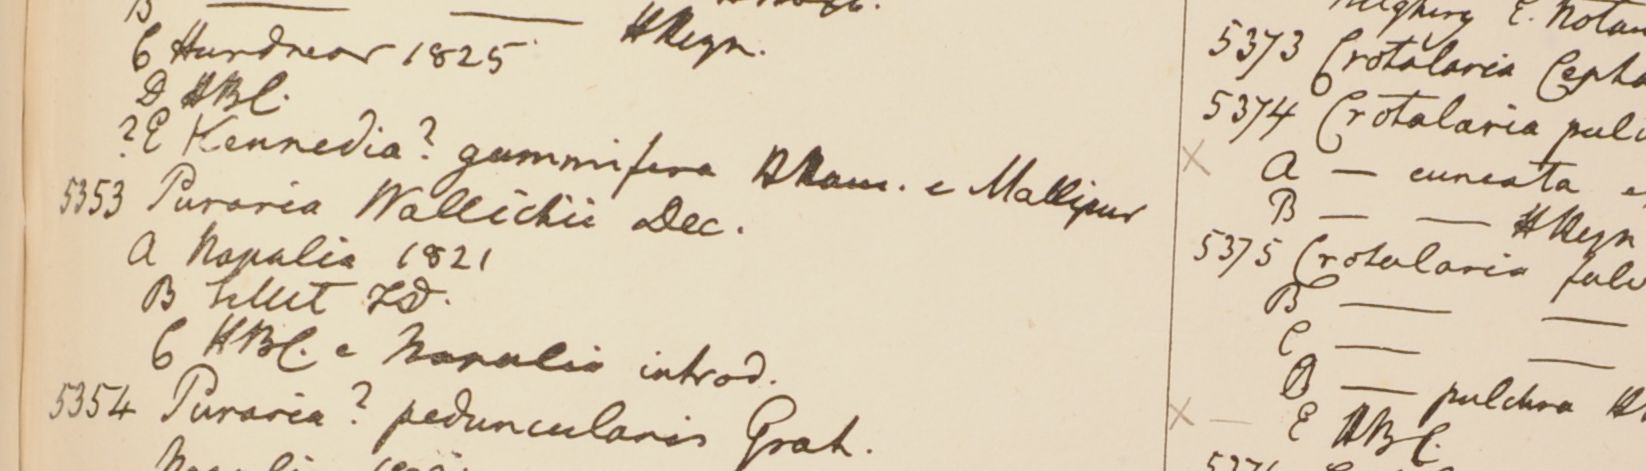 B
C Hurdwar 1825 HRegn.
D HBC.
?E Kennedia? gummifera HHam. e Mallipur
5353 Puraria Wallichii Dec.
A Napalia 1821
B Sillet FD.
C HBC. e Napalia introd.
5354 Puraria? peduncularis Grah.
Napalia
E. Notan
5373 Crotalaria Cepha
5374 Crotalaria pulc
A — cuneata e
B — — HRegn
5375 Crotalaria fulv
B — —
C — —
D — pulchra H
E HBC.